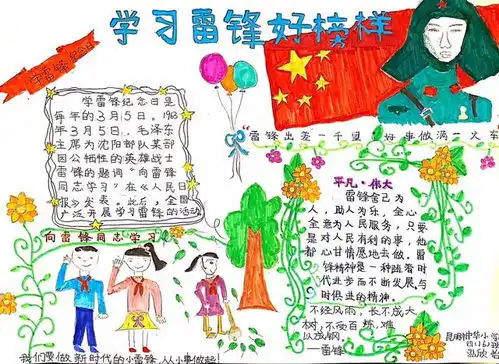 学习雷锋好榜样
学雷锋纪念日
学雷锋纪念日是
每年的3月5日。1963
年3月5日,毛泽东
主席为沈阳部队某部
因公牺牲的英雄战士
雷锋的题词“向雷锋
同志学习”在《人民日
报》发表。此后,全国
广泛开展学习雷锋的活动
向雷锋同志学习
“雷锋出差一千里 好事做满一火车
平凡·伟大
雷锋舍己为
人,助人为乐,全心
全意为人民服务,只要
是对人民有利的事,他
都心甘情愿地去做。雷
锋精神是一种随着时
代进步而不断发展与
时俱进的精神。
不经风雨,长不成大
树,不受百炼,难
以成钢
—雷锋
我们要做新时代的小雷锋,从小事做起!